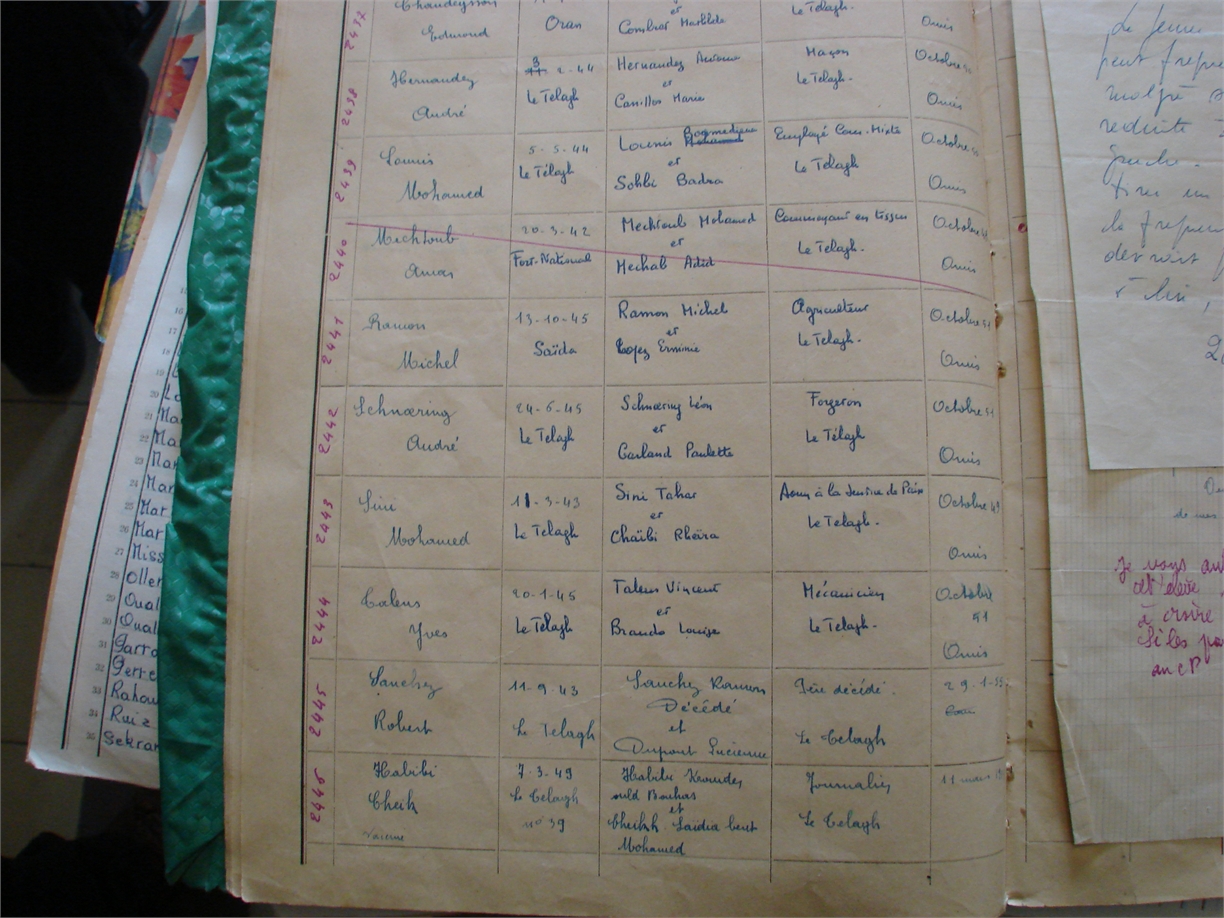 2437
Edmond
Oran
et
Le Telagh.
Omis
2438
Hernandez
André
3
2-44
Le Telagh
Hernandez
et
Canillos Marie
Maçon
Le Telagh.
Octobre
Omis
2439
Lounis
Mohamed
5-5-44
Le Télagh
Lounis Boumediene
et
Sohbi Badra
Employé Com-Mixte
Le Telagh.
Octobre
Omis
2440
Mechtoub
Amar
20-3-42
Fort-National
Mechtoub Mohamed
et
Mechab
Commerçant en tissus
Le Telagh.
Octobre
Omis
2441
Ramon
Michel
13-10-45
Saïda
Ramon Michel
et
Lopez Erminie
Agriculteur
Le Telagh.
Octobre 51
Omis
2442
Schnæring
André
24-6-45
Le Telagh
Schnæring Léon
et
Garland Paulette
Forgeron
Le Télagh
Octobre 51
Omis
2443
Sini
Mohamed
11-3-43
Le Telagh
Sini Tahar
et
Chaïbi Kheïra
à la Justice de Paix
Le Telagh.
Octobre 49
Omis
2444
Talens
Yves
20-1-45
Le Telagh
Talens Vincent
et
Brando Louise
Mécanicien
Le Telagh.
Octobre
51
Omis
2445
Sanchez
Robert
11-9-43
Le Telagh
Sanchez Ramon
Décédé
et
Dupont Lucienne
Père décédé.
Le Telagh
29-1-
2446
Habibi
Cheik
7-3-49
Le Telagh
n° 39
Habibi
ould Bouhas
et
Cheikh Saïdia bent
Mohamed
Journalier
Le Telagh
11 mars
16
17
18
19
20
21
22
23
24
25
26
27 Miss
28 Oller
29 Oual
30 Oual
31
32
33 Rahou
34 Ruiz
35 Sekran
peut
malgré
réduite
gauche.
tirer un
la
2
Je vous
élève
à croire
Si les
au CP